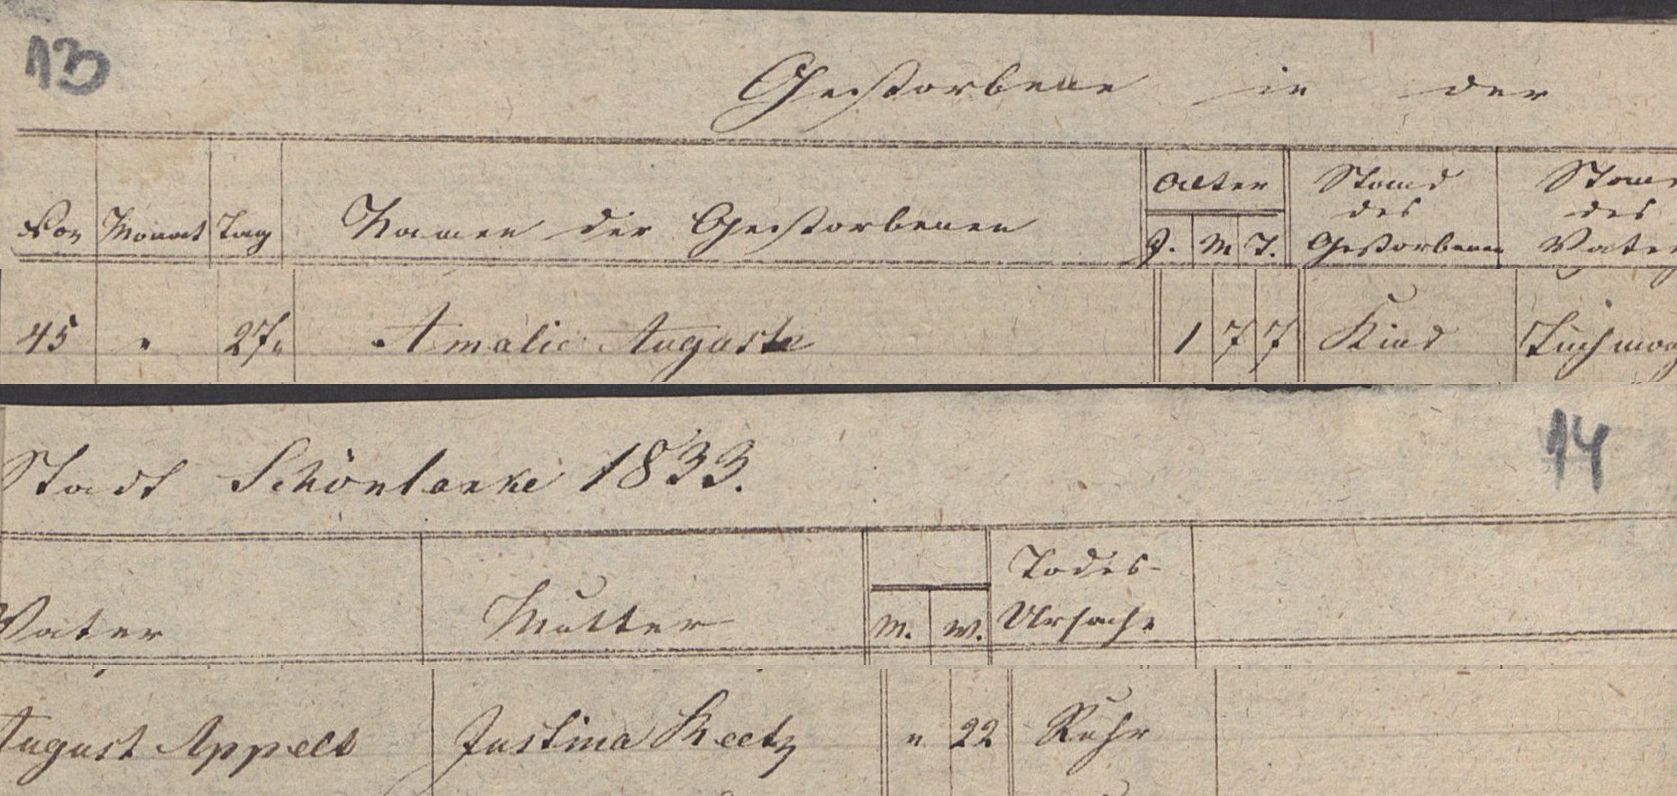 13
Gestorbene in der
Alter Stand Stand
des des
No Monat Tag Namen der Gestorbenen J. M T. Gestorbenen Vaters
45 " 27. Amalie Auguste 1 7 7 Kind Tuchmach
Stadt Schönlanke 1833. 14
Todes-
Vater Mutter M. W. Ursache
August Appelt Justina Reetz " 22 Ruhr